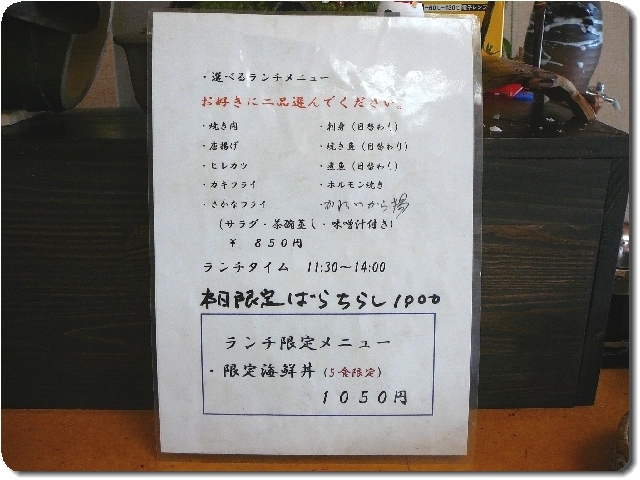 -60L~130L 電子レンジ
・選べるランチメニュー
お好きに二品選んでください。
・焼き肉 ・刺身(日替わり)
・唐揚げ ・焼き魚(日替わり)
・ヒレカツ ・煮魚(日替わり)
・カキフライ ・ホルモン焼き
・さかなフライ ・かれいから揚
(サラダ・茶碗蒸し・味噌汁付き)
¥ 850円
ランチタイム 11:30~14:00
本日限定ばらちらし1000
ランチ限定メニュー
・限定海鮮丼(5食限定)
1050円